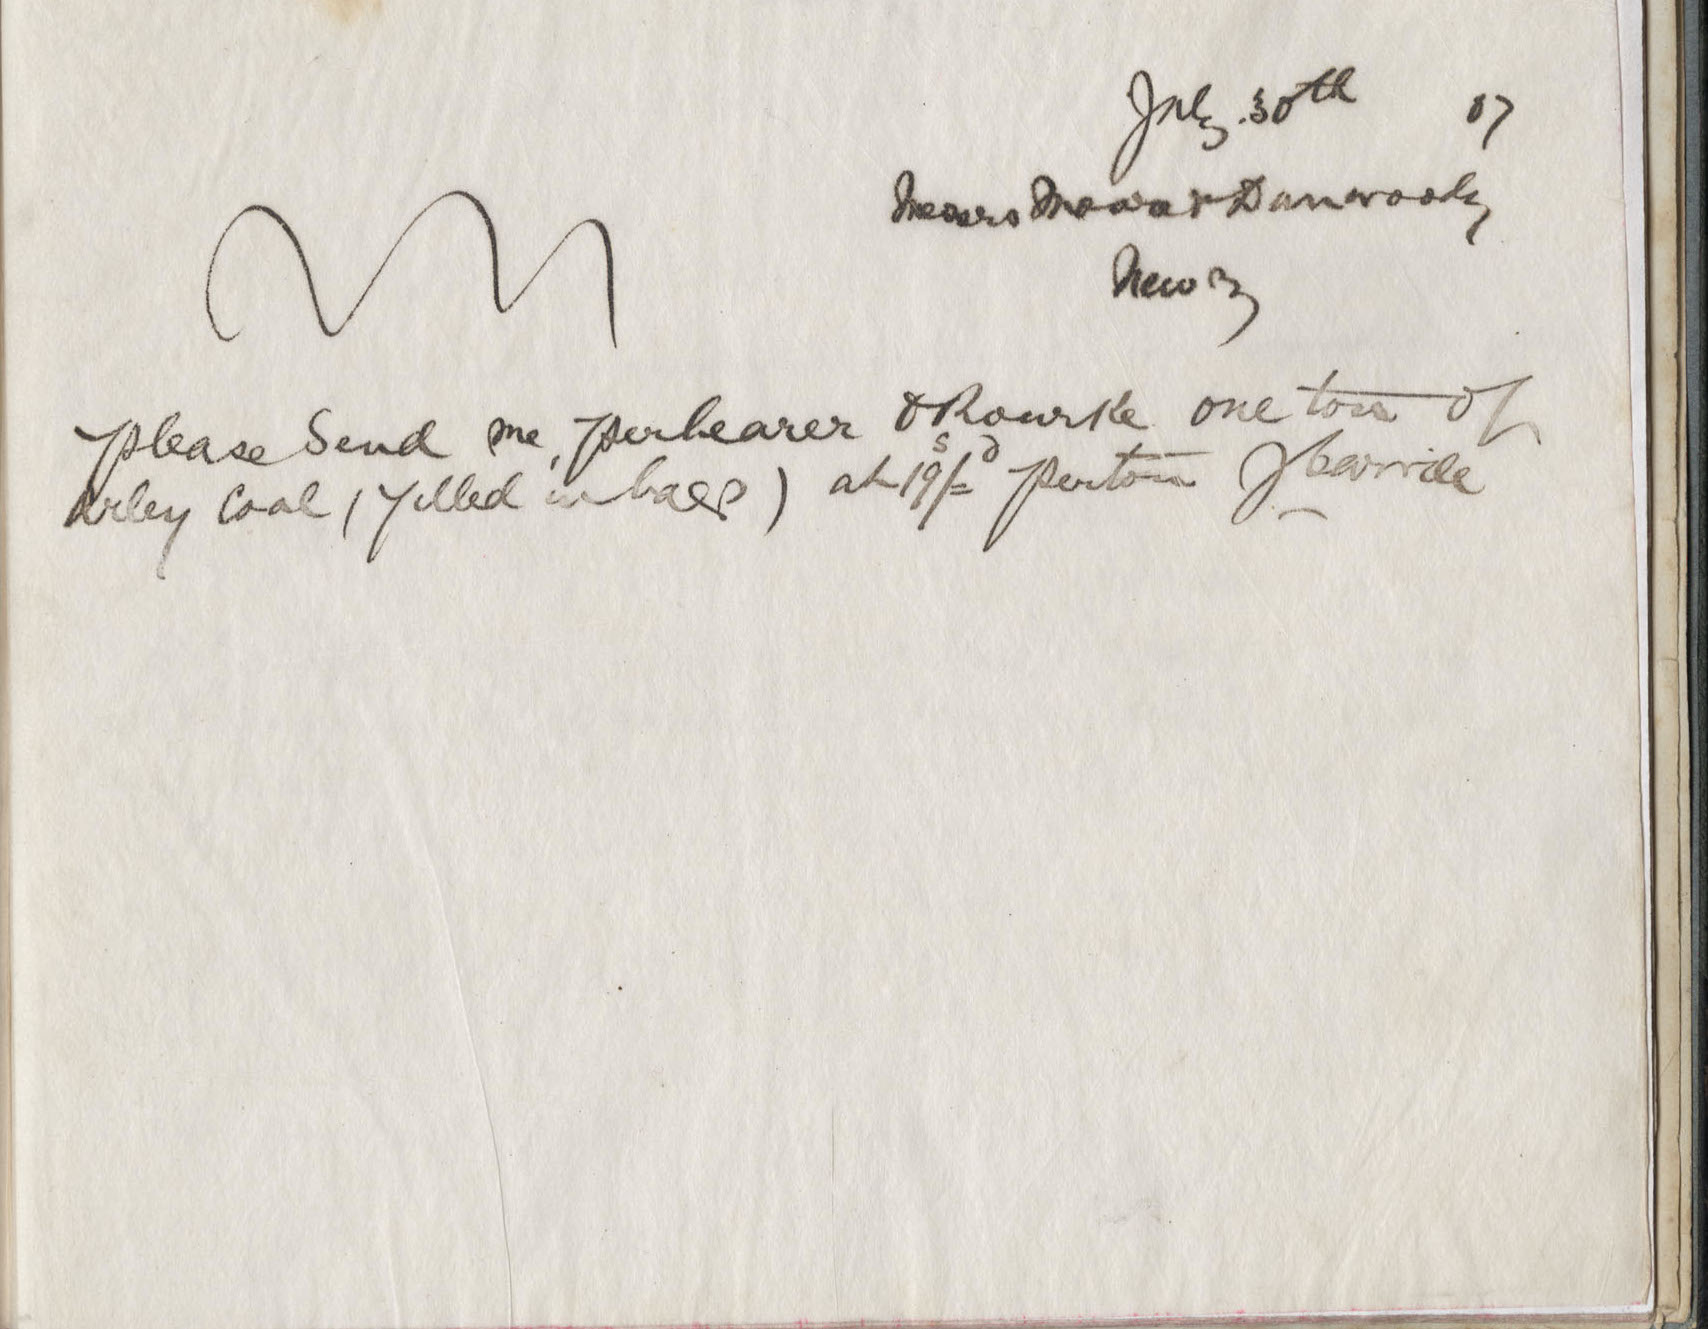 July 30th 07
Messrs & Dunwoody
Newry
please Send me, per bearer O Rourke one ton of
Arley Coal, (filled in bags) at 19s/=d per ton J Carville